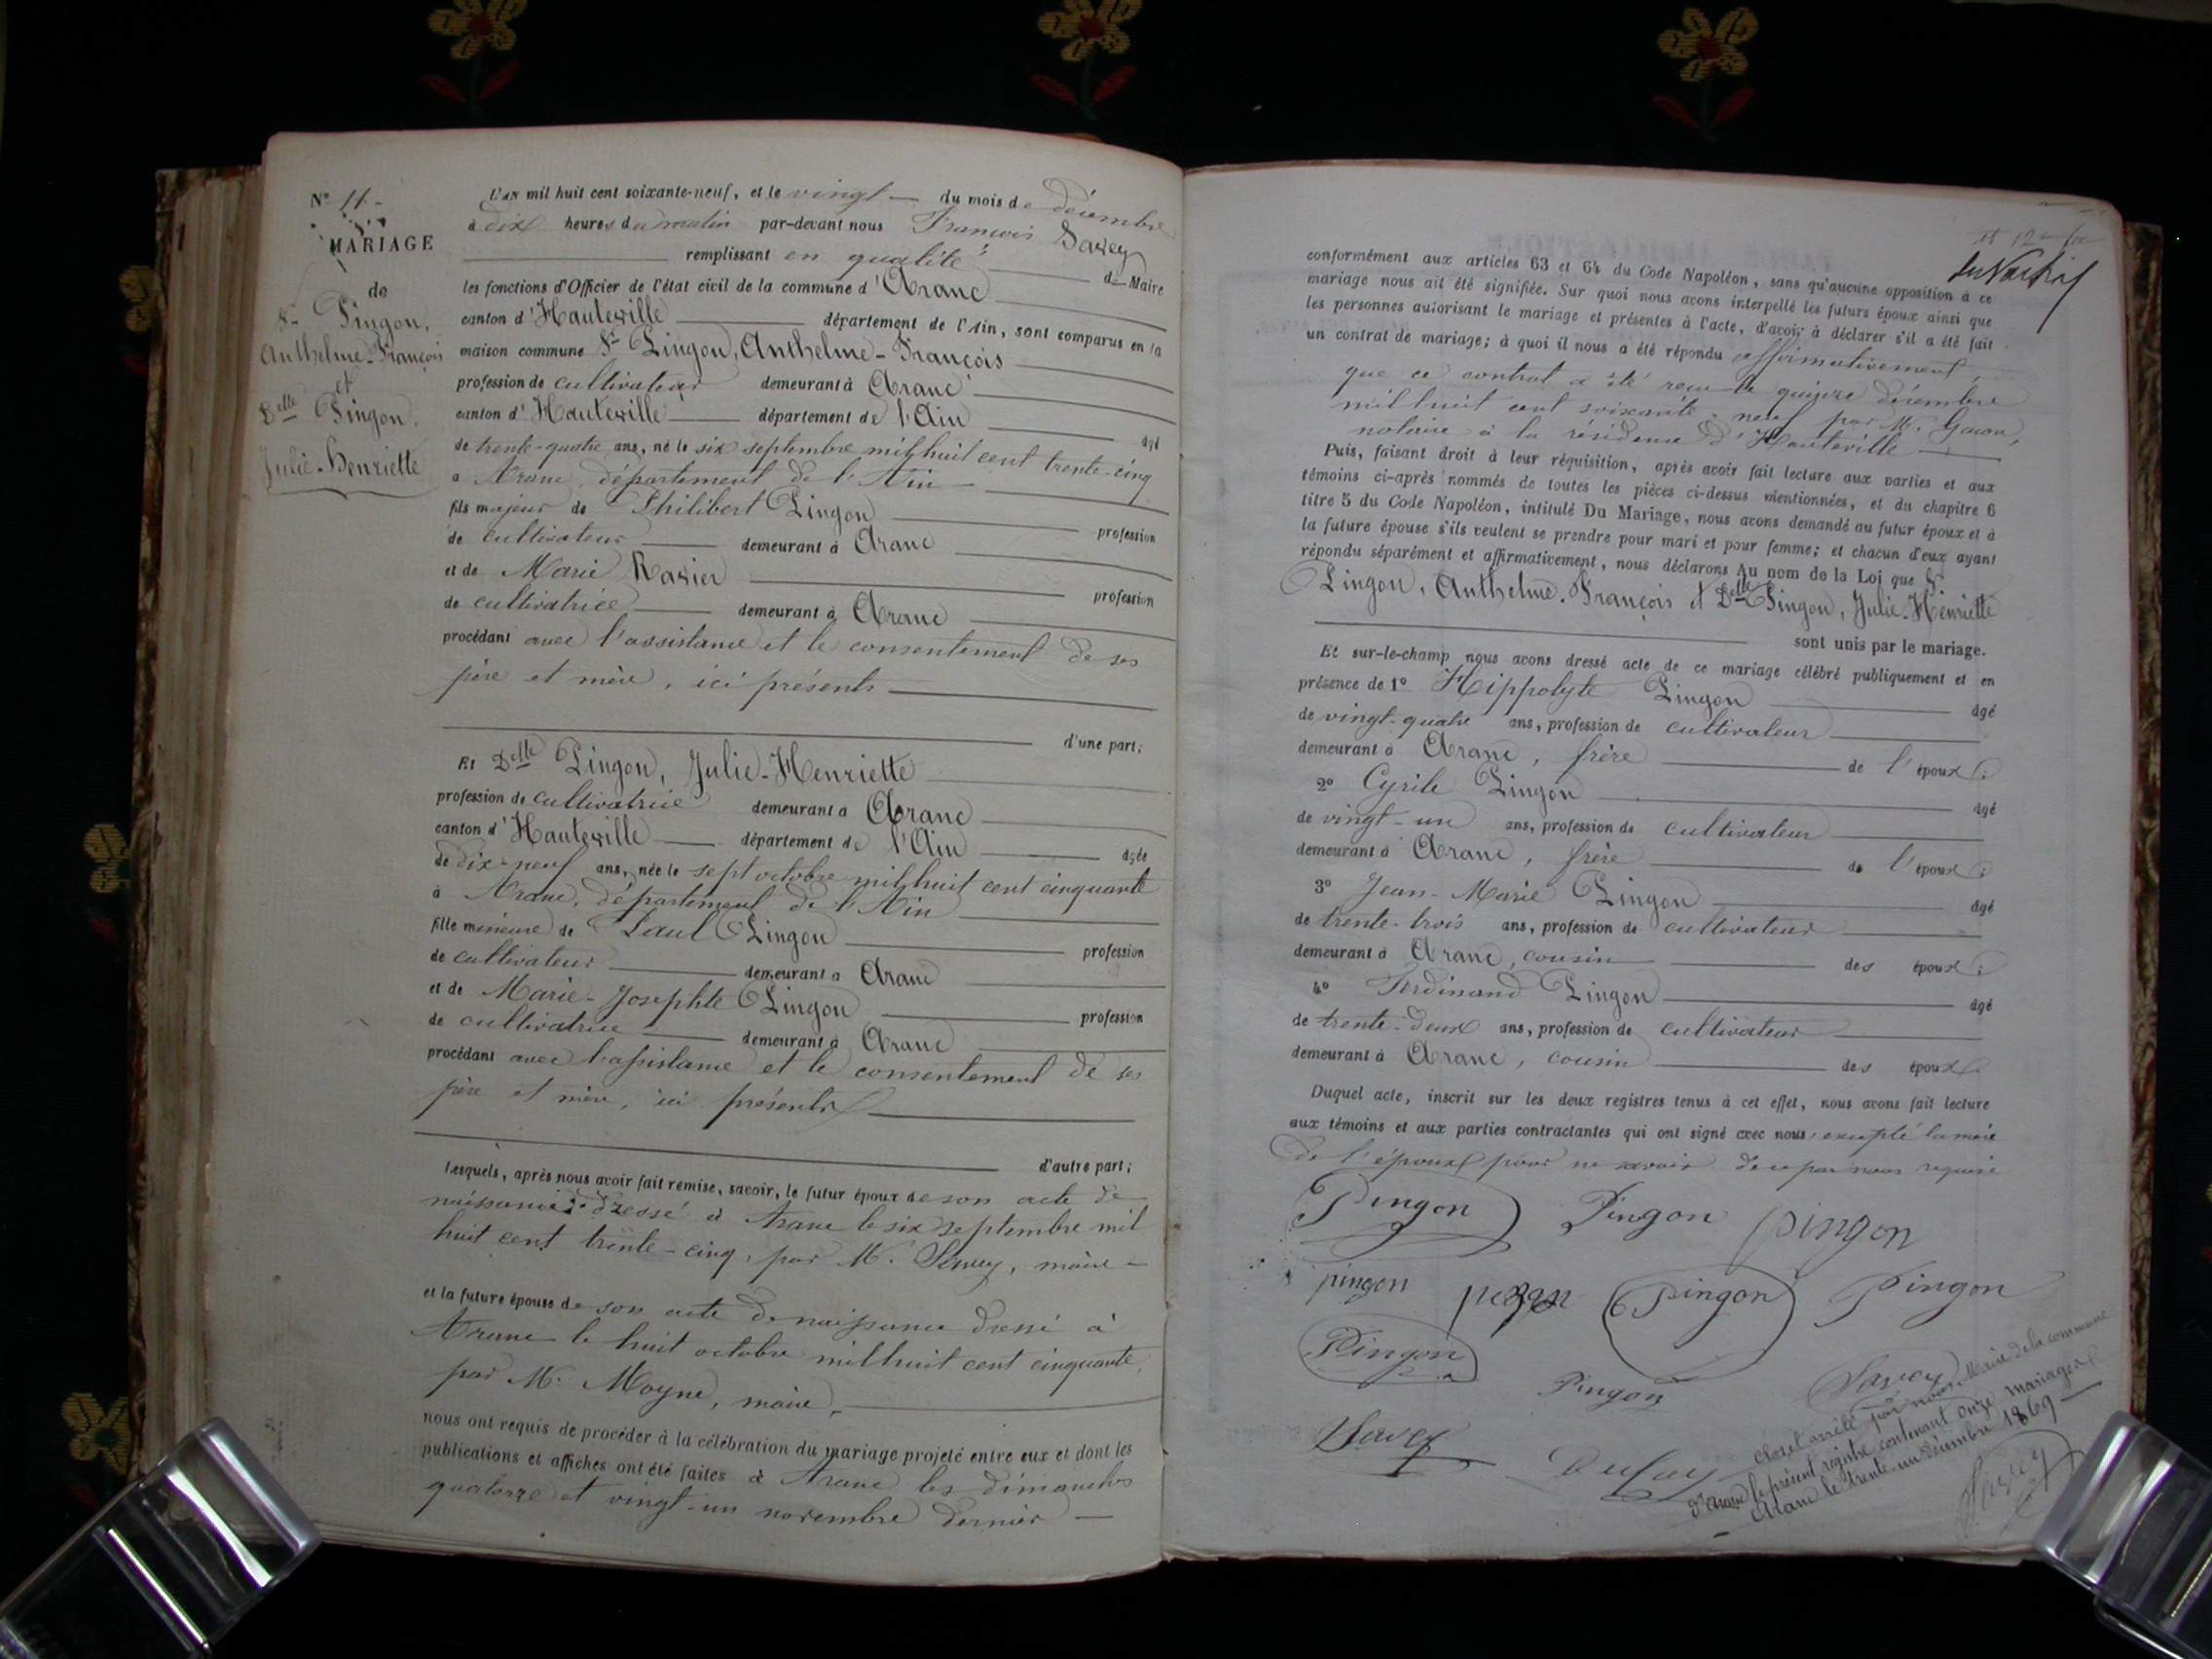 N° 11 -
MARIAGE
de
Sr Pingon,
Anthelme-François
et
Delle Pingon,
Julie-Henriette
L'AN mil huit cent soixante-neuf, et le vingt du mois de décembre
à dix heures du matin par-devant nous François Savey
remplissant en qualité de Maire
les fonctions d'Officier de l'état civil de la commune d'Aranc
canton d'Hauteville département de l'Ain, sont comparus en la
maison commune Sr Pingon, Anthelme-François
profession de cultivateur demeurant à Aranc
canton d'Hauteville département de l'Ain âgé
de trente-quatre ans, né le six septembre mil huit cent trente-cinq
à Aranc, département de l'Ain
fils majeur de Philibert Pingon profession
de cultivateur demeurant à Aranc
et de Marie Ravier profession
de cultivatrice demeurant à Aranc
procédant avec l'assistance et le consentement de ses
père et mère, ici présents
d'une part;
Et Delle Pingon, Julie-Henriette
profession de cultivatrice demeurant à Aranc
canton d'Hauteville département de l'Ain âgée
de dix-neuf ans, née le sept octobre mil huit cent cinquante
à Aranc, département de l'Ain
fille mineure de Paul Pingon profession
de cultivateur demeurant à Aranc
et de Marie-Josephte Pingon profession
de cultivatrice demeurant à Aranc
procédant avec l'assistance et le consentement de ses
père et mère, ici présents
d'autre part;
Lesquels, après nous avoir fait remise, savoir, le futur époux de son acte de
naissance dressé à Aranc le six septembre mil
huit cent trente-cinq, par M. Savey, maire
et la future épouse de son acte de naissance dressé à
Aranc le huit octobre mil huit cent cinquante,
par M. Moyne, maire,
nous ont requis de procéder à la célébration du mariage projeté entre eux et dont les
publications et affiches ont été faites à Aranc les dimanches
quatorze et vingt-un novembre dernier
conformément aux articles 63 et 64 du Code Napoléon, sans qu'aucune opposition à ce
mariage nous ait été signifiée. Sur quoi nous avons interpellé les futurs époux ainsi que
les personnes autorisant le mariage et présentes à l'acte, d'avoir à déclarer s'il a été fait
un contrat de mariage; à quoi il nous a été répondu affirmativement,
que ce contrat a été reçu le quinze décembre
mil huit cent soixante-neuf par M. Gacon,
notaire à la résidence d'Hauteville
Puis, faisant droit à leur réquisition, après avoir fait lecture aux parties et aux
témoins ci-après nommés de toutes les pièces ci-dessus mentionnées, et du chapitre 6
titre 5 du Code Napoléon, intitulé Du Mariage, nous avons demandé au futur époux et à
la future épouse s'ils veulent se prendre pour mari et pour femme; et chacun d'eux ayant
répondu séparément et affirmativement, nous déclarons Au nom de la Loi que Sr
Pingon, Anthelme-François et Delle Pingon, Julie-Henriette
sont unis par le mariage.
Et sur-le-champ nous avons dressé acte de ce mariage célébré publiquement et en
présence de 1° Hippolyte Pingon âgé
de vingt-quatre ans, profession de cultivateur
demeurant à Aranc, frère de l'époux;
2° Cyrile Pingon âgé
de vingt-un ans, profession de cultivateur
demeurant à Aranc, frère de l'époux;
3° Jean-Marie Pingon âgé
de trente-trois ans, profession de cultivateur
demeurant à Aranc, cousin des époux;
4° Ferdinand Pingon âgé
de trente-deux ans, profession de cultivateur
demeurant à Aranc, cousin des époux
Duquel acte, inscrit sur les deux registres tenus à cet effet, nous avons fait lecture
aux témoins et aux parties contractantes qui ont signé avec nous, excepté la mère
de l'époux pour ne savoir de ce par nous requise
Pingon Pingon pingon
pingon Pingon Pingon
Pingon Pingon Savey
Savey Dufuy
Clos et arrêté par nous, Maire de la commune
d'Aranc le présent registre contenant onze mariages
Aranc le trente-un décembre 1869
Savey